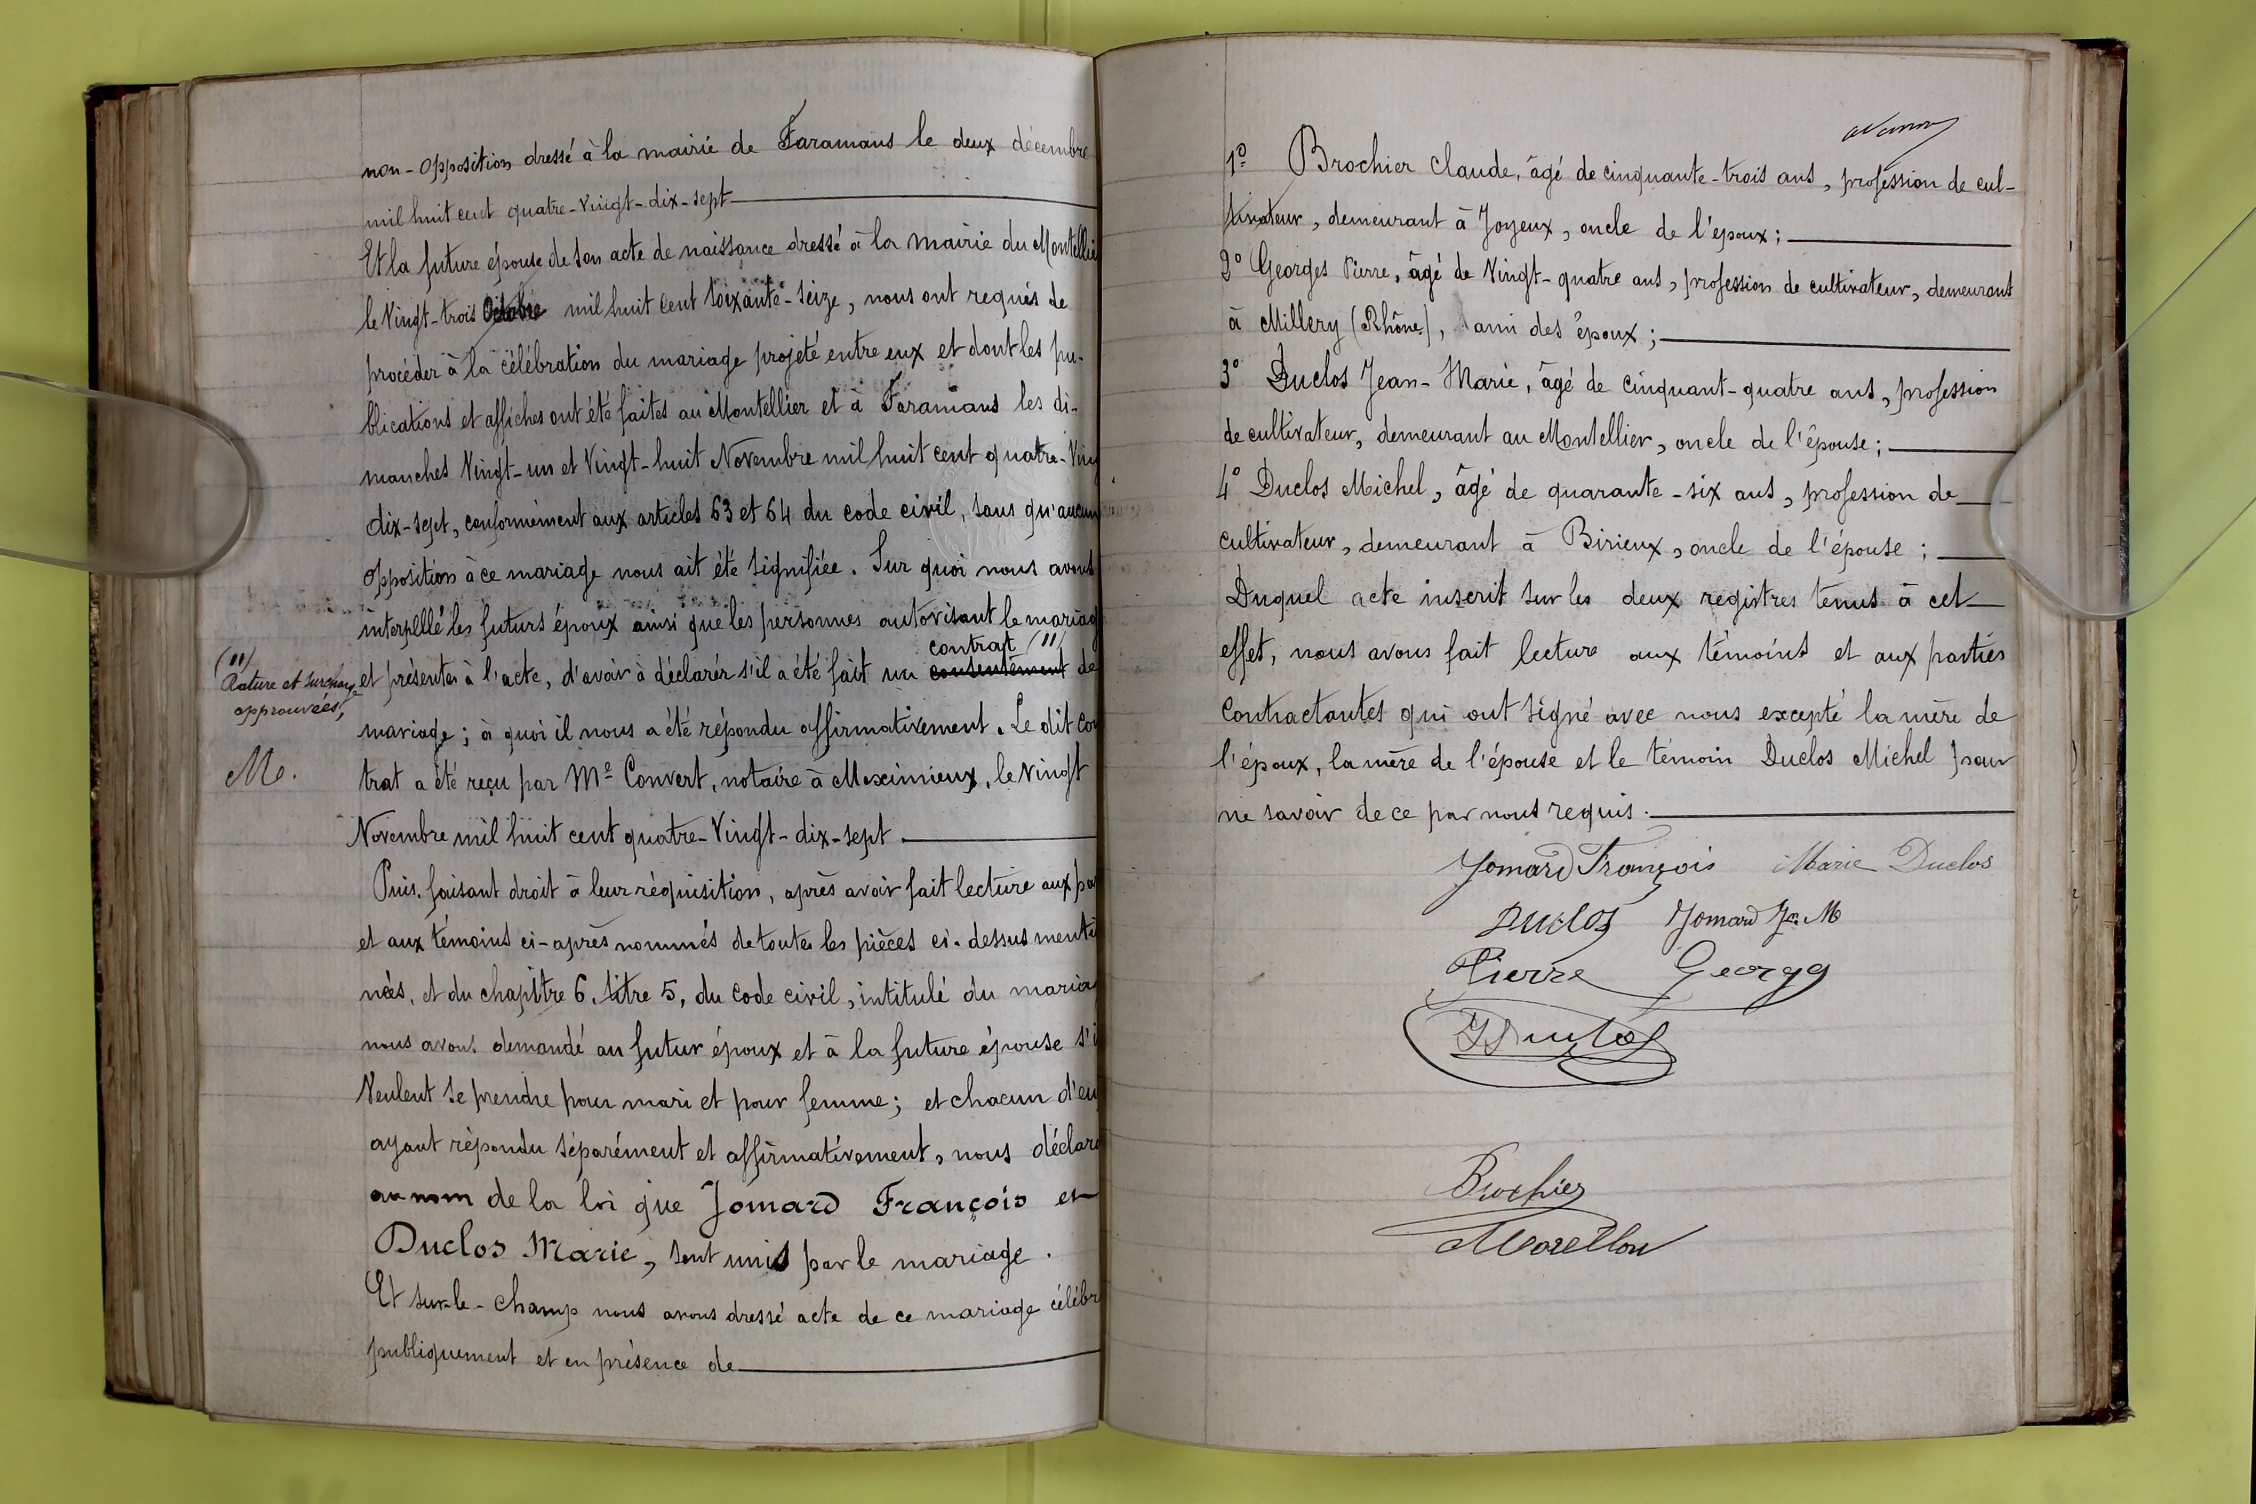 non-opposition dressé à la mairie de Faramans le deux décembre
mil huit cent quatre-Vingt-dix-sept
Et la future épouse de son acte de naissance dressé à la mairie du Montellie
le Vingt-trois Octobre mil huit cent soixante-seize, nous ont requis de
procéder à la célébration du mariage projeté entre eux et dont les pu-
blications et affiches ont été faites au Montellier et à Faramans les di-
manches Vingt-un et Vingt-huit Novembre mil huit cent quatre-Ving
dix-sept, conformément aux articles 63 et 64 du code civil, sans qu'aucun
opposition à ce mariage nous ait été signifiée. Sur quoi nous avons
interpellé les futurs époux ainsi que les personnes autorisant le mariag
contrat (11)
et présentes à l'acte, d'avoir à déclarer s'il a été fait un consentement de
(11)
Rature et surcharge
approuvées,
M.
mariage; à quoi il nous a été répondu affirmativement. Le dit con
trat a été reçu par Me Convert, notaire à Meximieux, le vingt
Novembre mil huit cent quatre-Vingt-dix-sept
Puis, faisant droit à leur réquisition, après avoir fait lecture aux pa
et aux témoins ci-après nommés de toutes les pièces ci-dessus menti
nées, et du chapitre 6, titre 5, du code civil, intitulé du mariag
nous avons demandé au futur époux et à la future épouse s'i
Veulent se prendre pour mari et pour femme; et chacun d'eux
ayant répondu séparément et affirmativement, nous déclaro
au nom de la loi que Jomard François et
Duclos Marie, sont unis par le mariage.
Et sur-le-champ nous avons dressé acte de ce mariage célébr
publiquement et en présence de
1° Brochier Claude, âgé de cinquante-trois ans, profession de cul-
tivateur, demeurant à Joyeux, oncle de l'époux;
2° Georges Pierre, âgé de Vingt-quatre ans, profession de cultivateur, demeurant
à Millery (Rhône), ami des époux;
3° Duclos Jean-Marie, âgé de cinquant-quatre ans, profession
de cultivateur, demeurant au Montellier, oncle de l'épouse;
4° Duclos Michel, âgé de quarante-six ans, profession de
cultivateur, demeurant à Birieux, oncle de l'épouse;
Duquel acte inscrit sur les deux registres tenus à cet
effet, nous avons fait lecture aux témoins et aux parties
contractantes qui ont signé avec nous excepté la mère de
l'époux, la mère de l'épouse et le témoin Duclos Michel pour
ne savoir de ce par nous requis.
Jomard François Marie Duclos
Duclos Jomard Jn M
Pierre George
Duclos
Brochier
Morellon